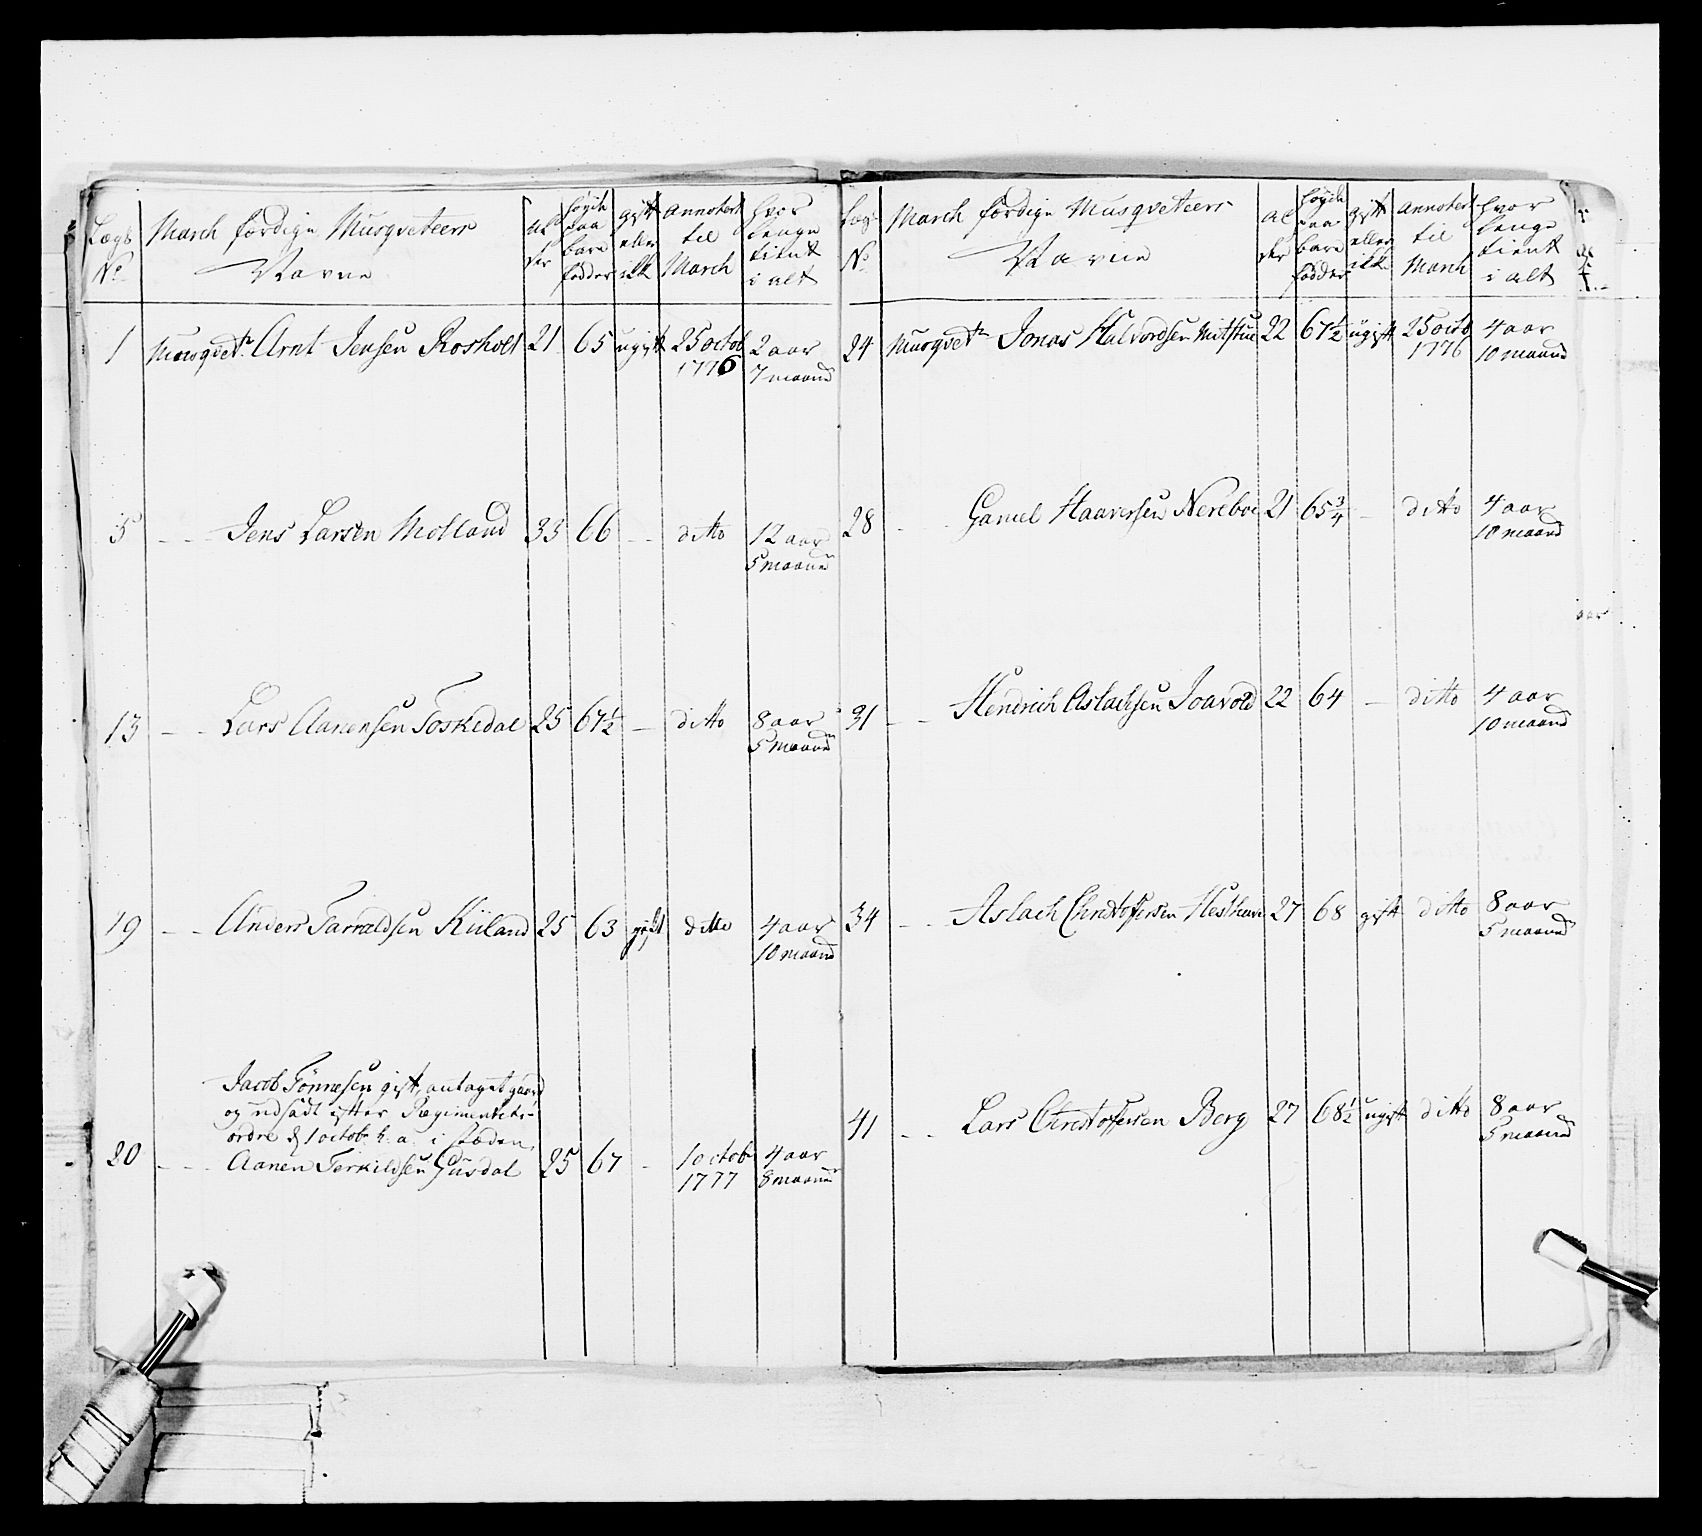 Lægs No | March færdige Musqveteers Navne | Alder | høyde paa bare fødder | gift eller ikke | annotert til March | hvor lenge tient i alt
1 | Musqvetr Arnt Jensen Rosholt | 21 | 65 | ugift | 25 octob 1776 | 2 aar 7 maaned
5 | - - Jens Larsen Molland | 33 | 66 | - - | ditto | 12 aar 5 maaned
13 | - - Lars Aanensen Toskedal | 25 | 67 1/2 | - | ditto | 8 aar 5 maaned
19 | - - Anders Tarraldsen Kiiland | 25 | 63 | gift | ditto | 4 aar 10 maaned
Jacob Tønnesen gift, antaget gaard
og udslädt efter Regimentets
ordre d 1 octob h. a. i stæden
20 | - - Aanen Terkildsen Gusdal | 25 | 67 | - | 1 octob 1777 | 4 aar 8 maaned
Lægs No | March færdige Musqveteers Navne | Alder | høyde paa bare fødder | gift eller ikke | annotert til March | hvor lenge tient i alt
24 | Musqvetr Jonas Halvordsen Mitstue | 22 | 67 1/2 | ugift | 25 octo 1776 | 4 aar 10 maaned
28 | - - Gamel Haaversen Nereboe | 21 | 65 3/4 | - | ditto | 4 aar 10 maaned
31 | - - Hendrich Aslachsen | 22 | 64 | - | ditto | 4 aar 10 maaned
34 | - - Aslach Christophersen | 27 | 68 | gift | ditto | 8 aar 5 maaned
41 | - - Lars Christophersen Berg | 27 | 68 1/2 | ugift | ditto | 8 aar 5 maaned
aar